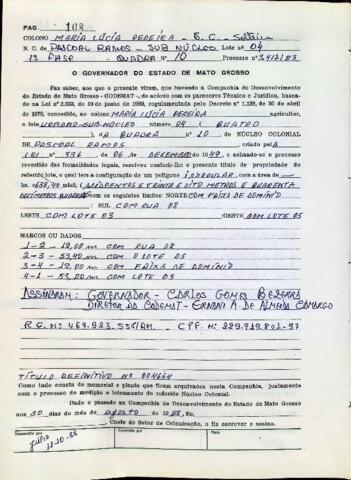 PAG. 108
COLONO MARIA LÚCIA PEREIRA - E.C. - Solteira
N. C. de PASCOAL RAMOS - SUB NÚCLEO Lote nº 04
1ª FASE - QUADRA Nº 10 Processo nº 3.412/83
O GOVERNADOR DO ESTADO DE MATO GROSSO
Faz saber, aos que o presente virem, que havendo a Companhia de Desenvolvimento
do Estado de Mato Grosso - CODEMAT -, de acordo com os pareceres Técnico e Jurídico, basea-
do na Lei nº de 10 de junho de 1969, regulamentada pelo Decreto nº de 30 de abril
de 1970, concedido, ao colono MARIA LÚCIA PEREIRA agricultor,
o lote URBANO - SUB NÚCLEO número 04 ( QUATRO
), da QUADRA nº 10, do NÚCLEO COLONIAL
de PASCOAL RAMOS criado pela
LEI nº 336 de 06 de DEZEMBRO de 1949, e achando-se o processo
revestido das formalidades legais, resolveu conferir-lhe o presente título de propriedade do
referido lote, o qual tera a configuração de um polígono IRREGULAR com a área de
638,40 m² (SEISCENTOS E TRINTA E OITO METROS E QUARENTA
DECÍMETROS QUADRADOS com os seguintes limites: NORTE COM FAIXA DE DOMÍNIO
; SUL COM RUA 08
LESTE COM LOTE 03 OESTE COM LOTE 05
MARCOS OU DADOS
1-2 - 12,00 m COM RUA 08
2-3 - 53,40 m COM O LOTE 05
3-4 - 12,00 m COM FAIXA DE DOMÍNIO
4-1 - 53,00 COM LOTE 03
ASSINARAM: GOVERNADOR - CARLOS GOMES BEZERRA
DIRETOR DA CODEMAT - ERNANI A. DE ALMEIDA CAMARGO
R.G. Nº 469.923 SSP/AM. - CPF. Nº 229.719.802-97
TÍTULO DEFINITIVO Nº 004664
Como tudo consta do memorial e planta que ficam arquivados nesta Companhia, juntamente
com o processo de medição e loteamento do referido Núcleo Colonial.
Dado e passado na Companhia de Desenvolvimento do Estado de Mato Grosso
aos 30 dias do mês de AGOSTO de 1988, Eu,
Chefe do Setor de Colonização, o fiz escrever e assino.
Julio
11-10-88